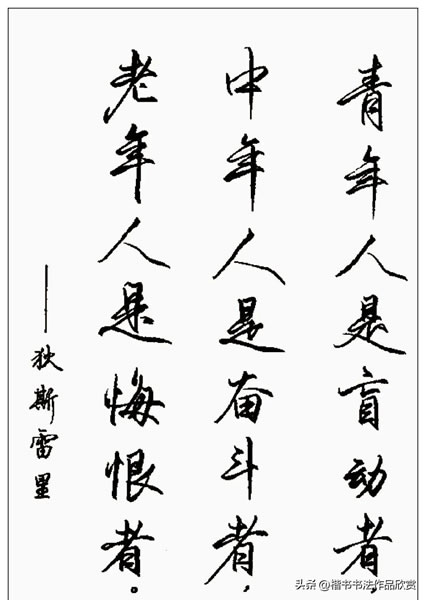 青年人是盲动者，
中年人是奋斗者，
老年人是悔恨者。
——狄斯雷里
头条@楷书书法作品欣赏